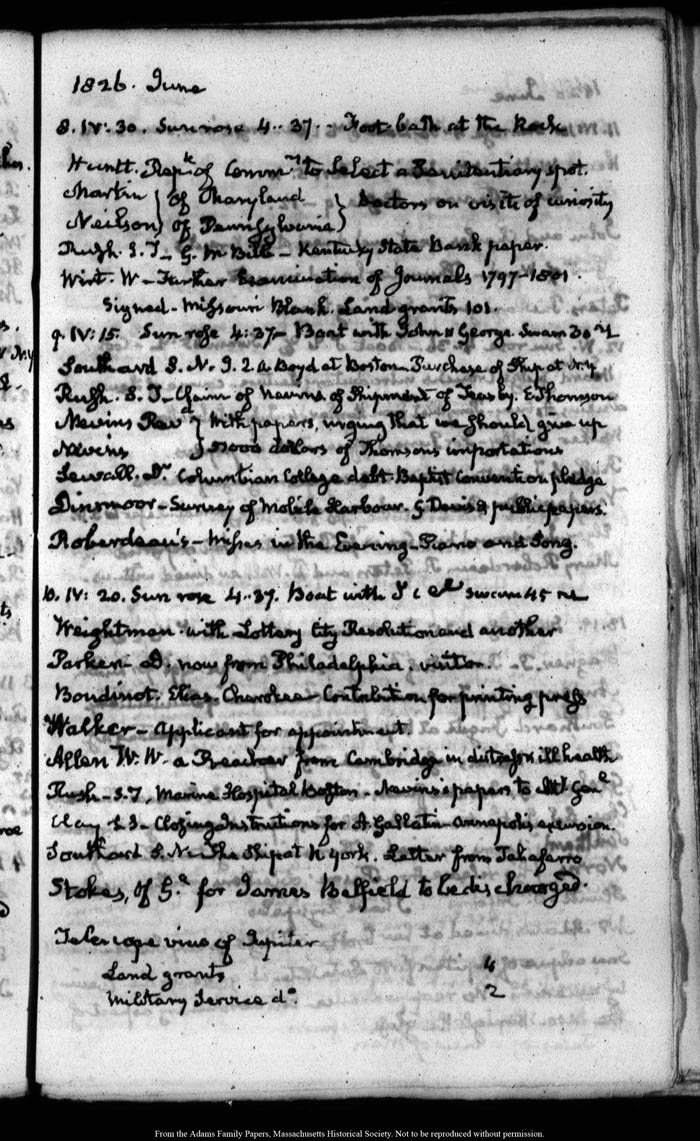 1826. June
8. IV: 30. Sun rose 4..37.. Foot bath at the Rock
Huntt. Rep.k of Comm.rs to Select a Penitentiary spot.
Martin } of Maryland } Doctors on visits of curiosity
Neilson } of Pennsylvania }
Rush. S. T. G. M. Bibb – Kentucky State Bank paper.
Wirt. W – Further Examination of Journals 1797–1801
Signed – Missouri Blank. Land grants 101.
9. IV: 15. Sun rose 4:37 – Boat with John & George. Swam 30
Southard S. N. J. Q. A. Boyd at Boston – Purchase of Ship at N.Y
Rush. S. T – Claim of Nevins of Shipment of Teas by. E Thomson
Nevins Rev.d } With papers, urging that we should give up
Nevins } dollars of Thomson's importations
Sewall. Dr Columbian College debt – Baptist Convention pledge
Dinsmoor – Survey of Mobile Harbour. G Davis's public papers.
Roberdeau's – Misses in the Evening – Piano and Song.
10. IV: 20. Sun rose 4..37. Boat with swam 45
Weightman. with Lottery City Resolution and another
Parker – D. now from Philadelphia. visitor.
Boudinot. Elias. Cherokee – Contribution for printing press
Walker – Applicant for appointment.
Allen W. W. a Preacher from Cambridge in distress & ill health
Rush – S. T, Marine Hospital Boston – Nevins's papers to Att.y Gen.l
Clay S. S – Closing Instructions for A. Gallatin – Annapolis excursion.
Southard S. N – The Ship at N. York. Letter from Taliaferro
Stokes, of G.a for James Belfield to be discharged.
Telescope view of Jupiter
Land grants 4
Military Service d.o 2
From the Adams Family Papers, Massachusetts Historical Society. Not to be reproduced without permission.